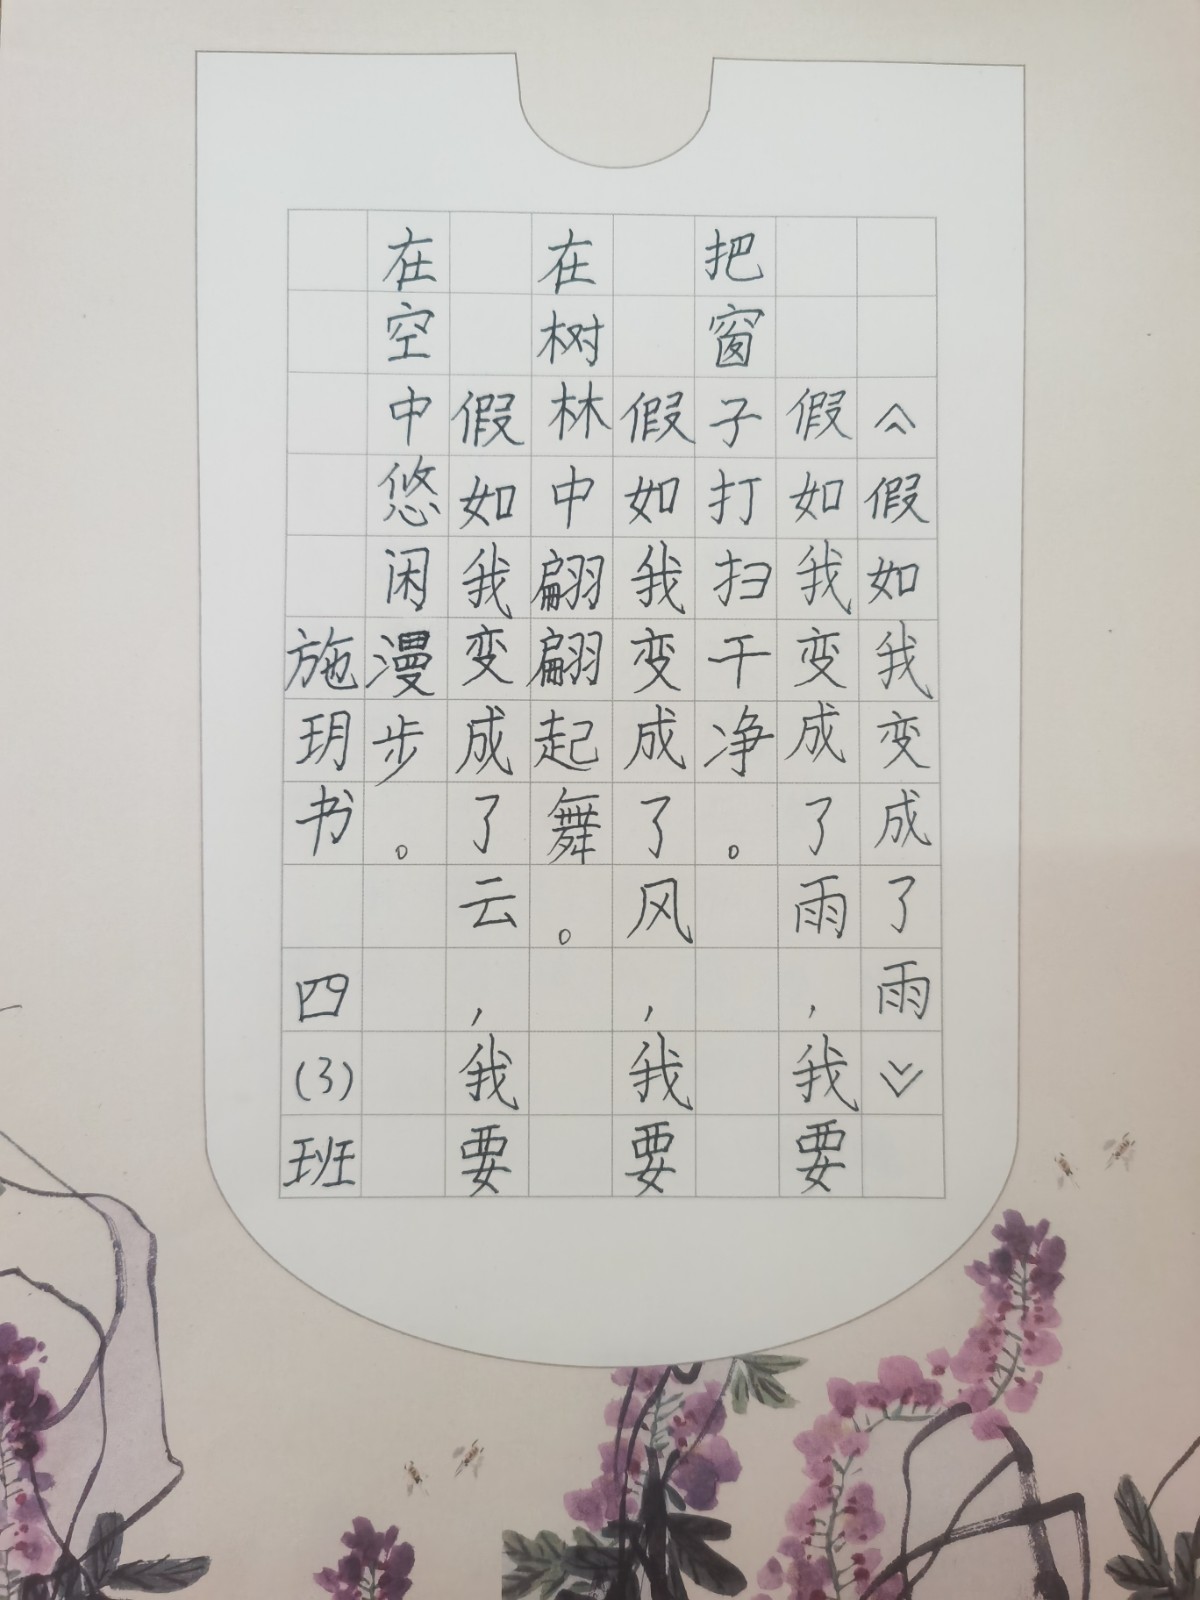 《假如我变成了雨》
假如我变成了雨，我要
把窗子打扫干净。
假如我变成了风，我要
在树林中翩翩起舞。
假如我变成了云，我要
在空中悠闲漫步。
施玥书 四(3)班